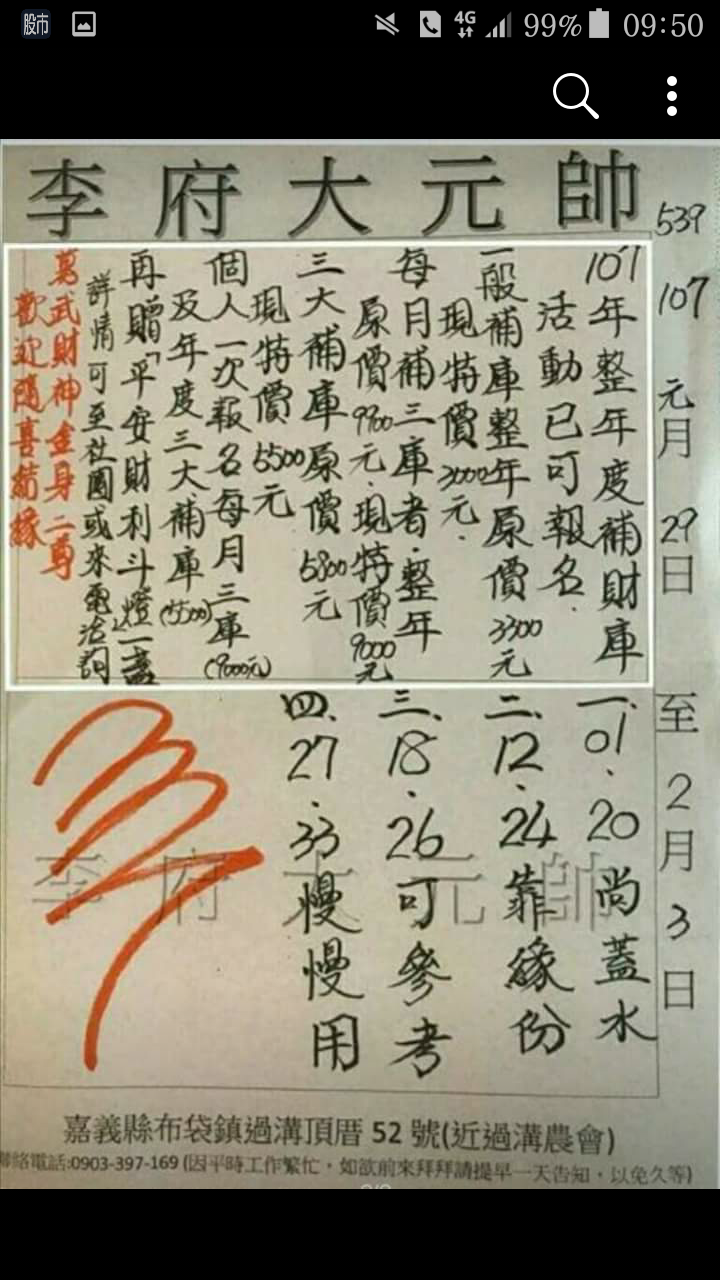 股市
4G 99% 09:50
李府大元帥
539
107 元月 29日 至 2月 3日
107年整年度補財庫
活動已可報名.
一般補庫整年原價3300元
現特價3000元.
每月補三庫者.整年
原價9900元.現特價9000元
三大補庫原價5800元
現特價5500元
個人一次報名每月三庫(9000元)
及年度三大補庫(5500)
再贈「平安財利斗燈」一盞
詳情可至社團或來電洽詢
萬武財神金身二尊
歡迎隨喜結緣
一.01.20尚蓋水
二.12.24靠緣份
三.18.26可參考
四.27.33慢慢用
李府大元帥
嘉義縣布袋鎮過溝頂厝 52 號(近過溝農會)
聯絡電話:0903-397-169 (因平時工作繁忙，如欲前來拜拜請提早一天告知，以免久等)